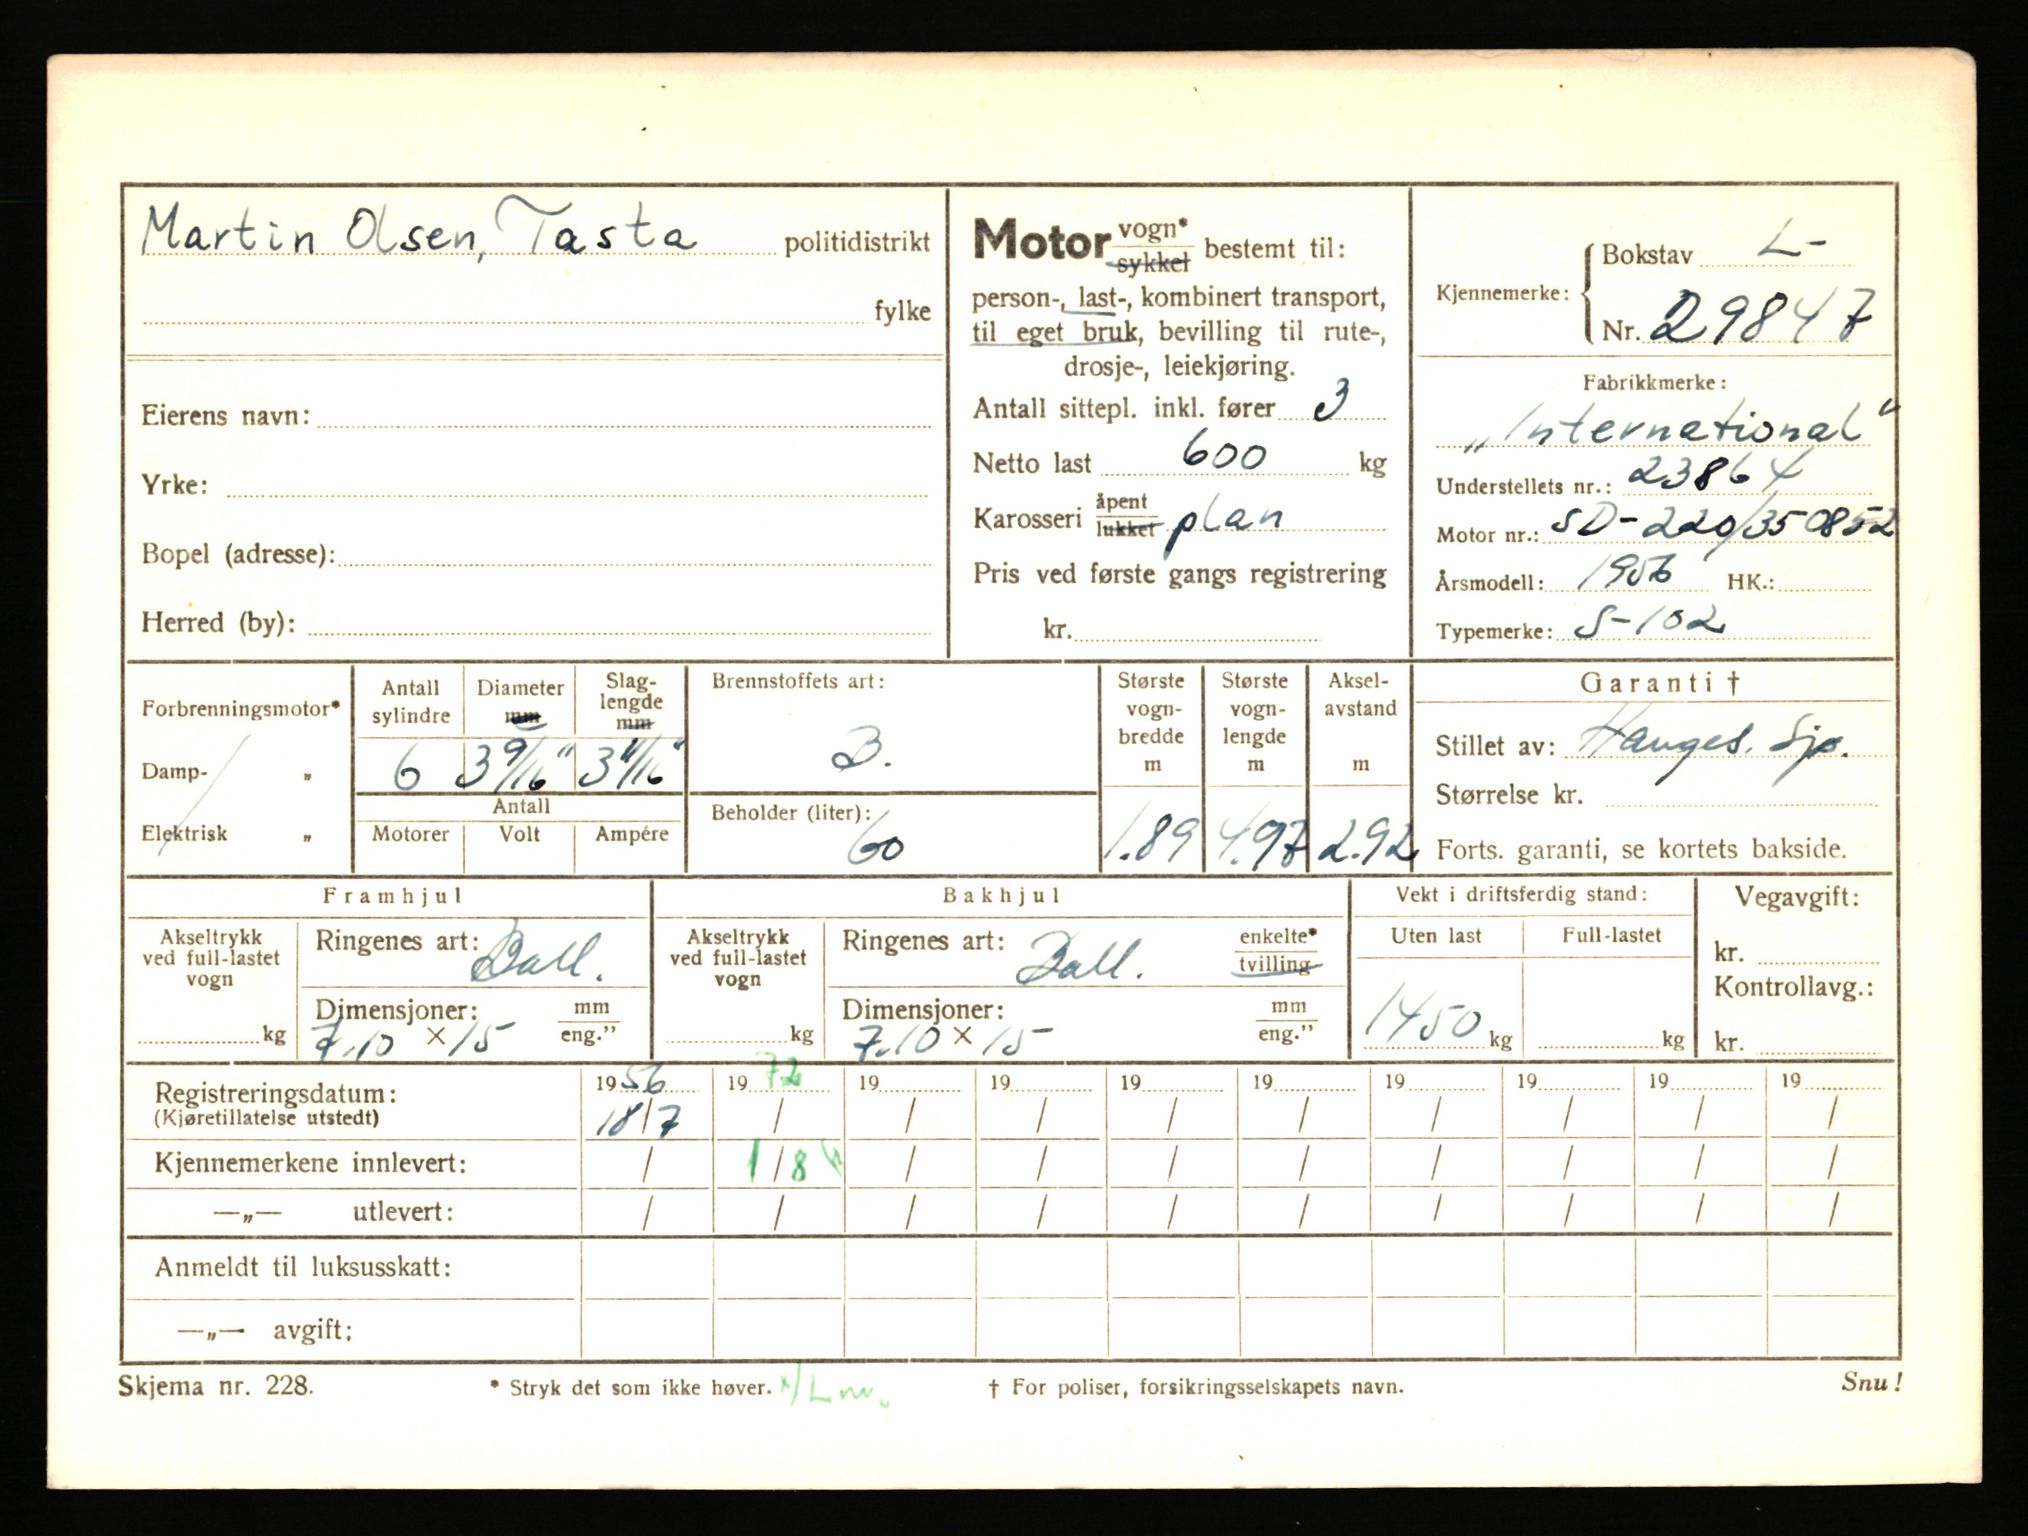 Martin Olsen, Tasta politidistrikt
fylke
Eierens navn:
Yrke:
Bopel (adresse):
Herred (by):
Motor vogn* sykkel bestemt til:
person-, last-, kombinert transport,
til eget bruk, bevilling til rute-,
drosje-, leiekjøring.
Antall sittepl. inkl. fører 3
Netto last 600 kg
Karosseri åpent lukket plan
Pris ved første gangs registrering
kr.
Kjennemerke: Bokstav L-
Nr. 29847
Fabrikkmerke:
„International"
Understellets nr.: 23864
Motor nr.: SD-220/350852
Årsmodell: 1956 HK.:
Typemerke: S-102
Forbrenningsmotor*
Damp- „
Elektrisk „
Antall sylindre 6
Diameter mm 3 9/16"
Slag-lengde mm 3 11/16"
Antall
Motorer Volt Ampére
Brennstoffets art:
B.
Beholder (liter):
60
Største vogn-bredde m 1.89
Største vogn-lengde m 4.97
Aksel-avstand m 2.92
Garanti †
Stillet av: Hauges. Sjø.
Størrelse kr.
Forts. garanti, se kortets bakside.
Framhjul
Akseltrykk ved full-lastet vogn
kg
Ringenes art: Ball.
Dimensjoner: mm
7.10 × 15 eng.”
Bakhjul
Akseltrykk ved full-lastet vogn
kg
Ringenes art: Ball. enkelte* tvilling
Dimensjoner: mm
7.10 × 15 eng.”
Vekt i driftsferdig stand:
Uten last Full-lastet
1450 kg kg
Vegavgift:
kr.
Kontrollavg.:
kr.
Registreringsdatum: 1956 1972 19 19 19 19 19 19 19 19
(Kjøretillatelse utstedt) 18/7 / / / / / / / / /
Kjennemerkene innlevert: / 1/8 / / / / / / / /
—„— utlevert: / / / / / / / / / /
Anmeldt til luksusskatt:
—„— avgift:
Skjema nr. 228. * Stryk det som ikke høver. † For poliser, forsikringsselskapets navn. Snu!